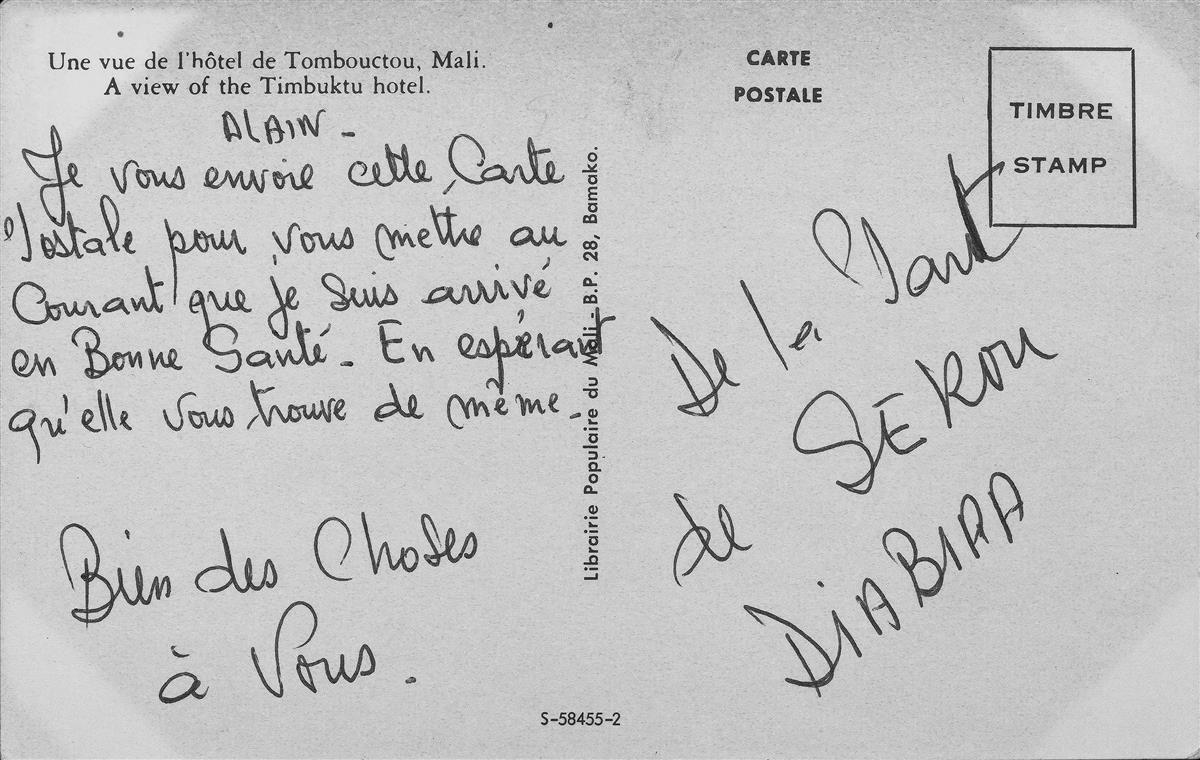 Une vue de l'hôtel de Tombouctou, Mali.
A view of the Timbuktu hotel.
ALAIN -
Je vous envoie cette Carte
Postale pour vous mettre au
Courant que je suis arrivé
en Bonne Santé - En espérant
qu'elle vous trouve de même -
Bien des Choses
à Vous.
Librairie Populaire du Mali - B.P. 28, Bamako.
S-58455-2
CARTE
POSTALE
TIMBRE
STAMP
De la Part
de SÉKOU
DIABIRA